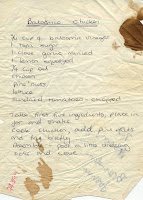 Balsamic Chicken
1/4 cup of balsamic vinegar
1 Tbsp sugar
1 clove garlic minced
1 lemon squeezed
1/4 cup oil
chicken
pine nuts
lettuce
sundried tomatoes - chopped
Take first five ingredients, place in
jar and shake
Cook chicken, add pine nuts
and fry briefly
pour a little dressing
over and serve